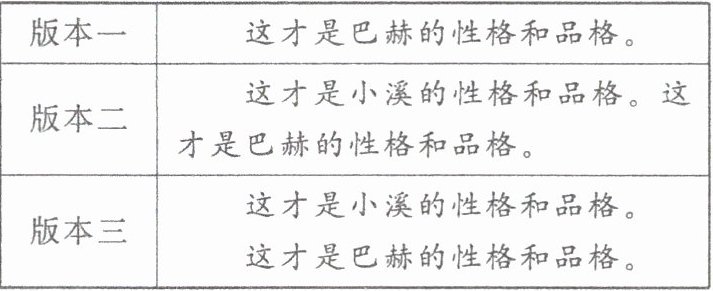 版本一 这才是巴赫的性格和品格。
版本二 这才是小溪的性格和品格。这
才是巴赫的性格和品格。
版本三 这才是小溪的性格和品格。
这才是巴赫的性格和品格。